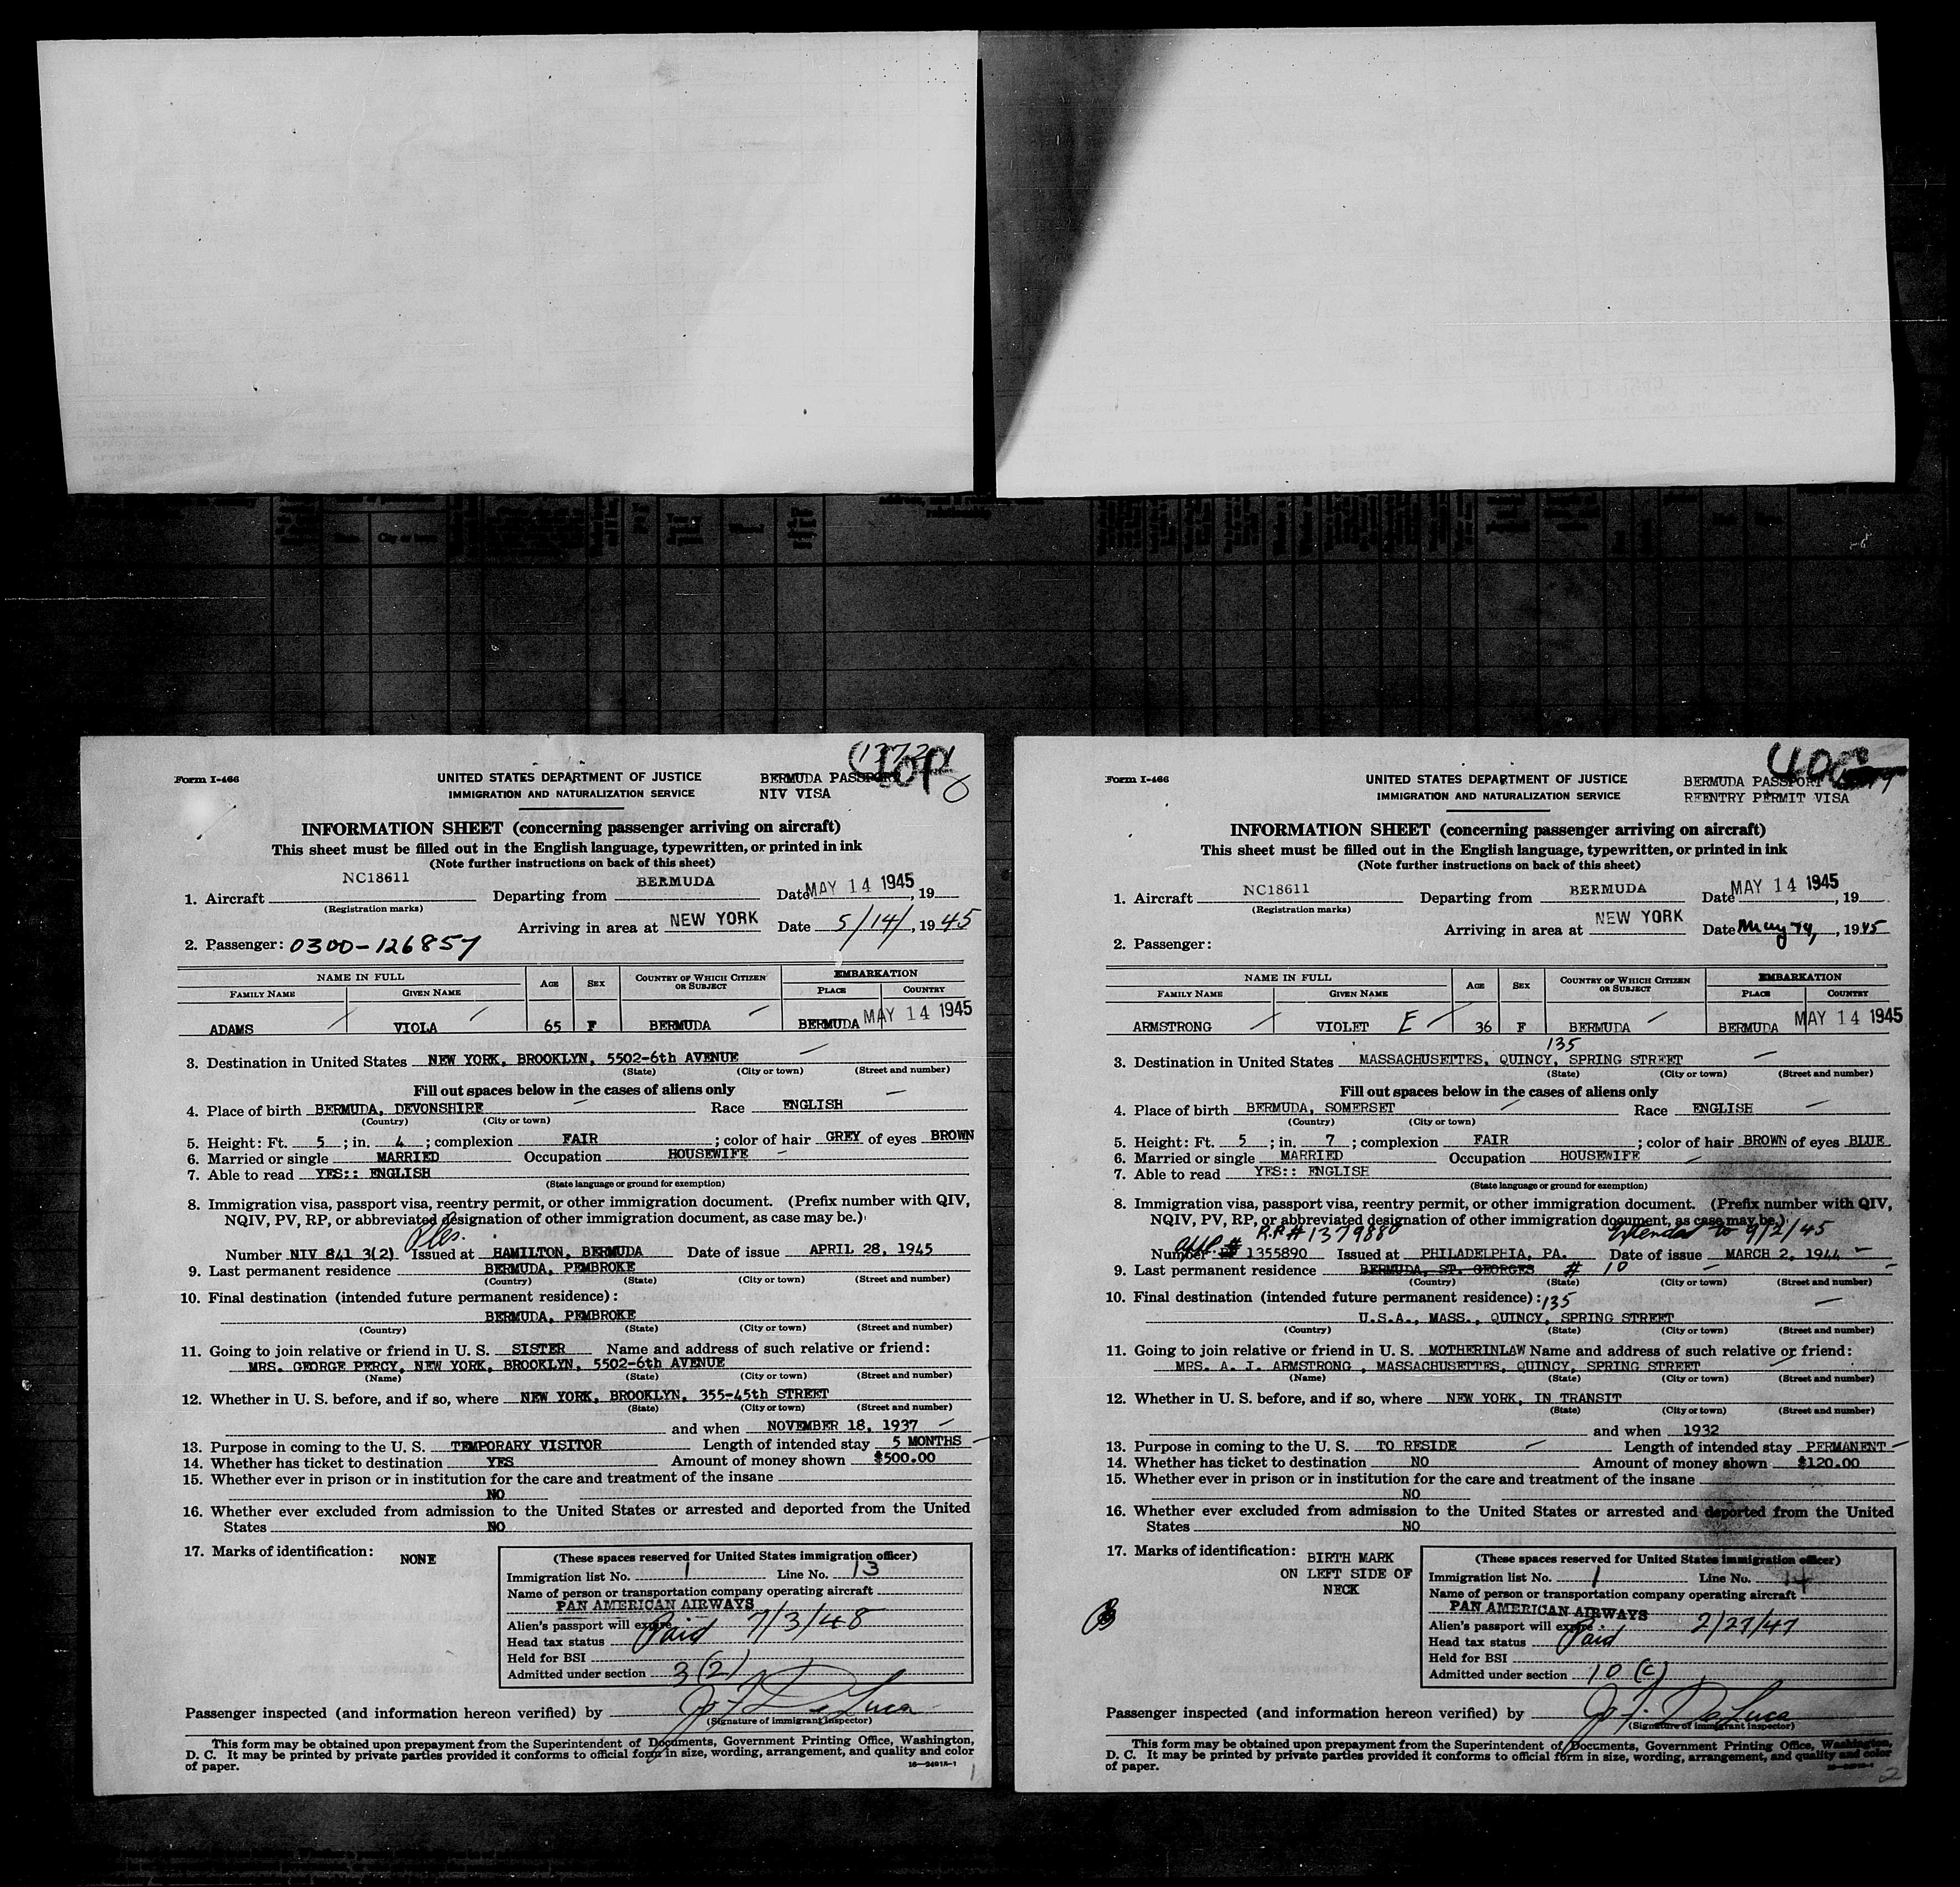 Form I-466
UNITED STATES DEPARTMENT OF JUSTICE
IMMIGRATION AND NATURALIZATION SERVICE
BERMUDA PASSPORT
NIV VISA
INFORMATION SHEET (concerning passenger arriving on aircraft)
This sheet must be filled out in the English language, typewritten, or printed in ink
(Note further instructions on back of this sheet)
1. Aircraft NC18611 Departing from BERMUDA Date MAY 14 1945, 19
(Registration marks)
Arriving in area at NEW YORK Date 5/14/, 1945
2. Passenger: 0300-126857
NAME IN FULL AGE SEX COUNTRY OF WHICH CITIZEN OR SUBJECT EMBARKATION
FAMILY NAME GIVEN NAME PLACE COUNTRY
ADAMS VIOLA 65 F BERMUDA BERMUDA MAY 14 1945
3. Destination in United States NEW YORK, BROOKLYN, 5502-6th AVENUE
(State) (City or town) (Street and number)
Fill out spaces below in the cases of aliens only
4. Place of birth BERMUDA, DEVONSHIRE Race ENGLISH
(Country) (City or town)
5. Height: Ft. 5; in. 4; complexion FAIR; color of hair GREY of eyes BROWN
6. Married or single MARRIED Occupation HOUSEWIFE
7. Able to read YES:: ENGLISH
(State language or ground for exemption)
8. Immigration visa, passport visa, reentry permit, or other immigration document. (Prefix number with QIV,
NQIV, PV, RP, or abbreviated designation of other immigration document, as case may be.)
Number NIV 841 3(2) Issued at HAMILTON, BERMUDA Date of issue APRIL 28, 1945
9. Last permanent residence BERMUDA, PEMBROKE
(Country) (State) (City or town) (Street and number)
10. Final destination (intended future permanent residence):
BERMUDA, PEMBROKE
(Country) (State) (City or town) (Street and number)
11. Going to join relative or friend in U. S. SISTER Name and address of such relative or friend:
MRS. GEORGE PERCY, NEW YORK, BROOKLYN, 5502-6th AVENUE
(Name) (State) (City or town) (Street and number)
12. Whether in U. S. before, and if so, where NEW YORK, BROOKLYN, 355-45th STREET
(State) (City or town) (Street and number)
and when NOVEMBER 18, 1937
13. Purpose in coming to the U. S. TEMPORARY VISITOR Length of intended stay 5 MONTHS
14. Whether has ticket to destination YES Amount of money shown $500.00
15. Whether ever in prison or in institution for the care and treatment of the insane
NO
16. Whether ever excluded from admission to the United States or arrested and deported from the United
States NO
17. Marks of identification: NONE
(These spaces reserved for United States immigration officer)
Immigration list No. 1 Line No. 13
Name of person or transportation company operating aircraft
PAN AMERICAN AIRWAYS
Alien's passport will expire 7/3/48
Head tax status Paid
Held for BSI
Admitted under section 3(2)
Passenger inspected (and information hereon verified) by J. F. De Luca
(Signature of immigrant inspector)
This form may be obtained upon prepayment from the Superintendent of Documents, Government Printing Office, Washington,
D. C. It may be printed by private parties provided it conforms to official form in size, wording, arrangement, and quality and color
of paper.
16-24915-1
1
Form I-466
UNITED STATES DEPARTMENT OF JUSTICE
IMMIGRATION AND NATURALIZATION SERVICE
BERMUDA PASSPORT
REENTRY PERMIT VISA
INFORMATION SHEET (concerning passenger arriving on aircraft)
This sheet must be filled out in the English language, typewritten, or printed in ink
(Note further instructions on back of this sheet)
1. Aircraft NC18611 Departing from BERMUDA Date MAY 14 1945, 19
(Registration marks)
Arriving in area at NEW YORK Date May 14, 1945
2. Passenger:
NAME IN FULL AGE SEX COUNTRY OF WHICH CITIZEN OR SUBJECT EMBARKATION
FAMILY NAME GIVEN NAME PLACE COUNTRY
ARMSTRONG VIOLET E 36 F BERMUDA BERMUDA MAY 14 1945
135
3. Destination in United States MASSACHUSETTES, QUINCY, SPRING STREET
(State) (City or town) (Street and number)
Fill out spaces below in the cases of aliens only
4. Place of birth BERMUDA, SOMERSET Race ENGLISH
(Country) (City or town)
5. Height: Ft. 5; in. 7; complexion FAIR; color of hair BROWN of eyes BLUE
6. Married or single MARRIED Occupation HOUSEWIFE
7. Able to read YES:: ENGLISH
(State language or ground for exemption)
8. Immigration visa, passport visa, reentry permit, or other immigration document. (Prefix number with QIV,
NQIV, PV, RP, or abbreviated designation of other immigration document, as case may be.)
R.P. # 1379880 Extended to 9/2/45
Number App. # 1355890 Issued at PHILADELPHIA, PA. Date of issue MARCH 2, 1944
9. Last permanent residence BERMUDA, ST. GEORGES # 10
(Country) (State) (City or town) (Street and number)
10. Final destination (intended future permanent residence): 135
U.S.A., MASS., QUINCY, SPRING STREET
(Country) (State) (City or town) (Street and number)
11. Going to join relative or friend in U. S. MOTHERINLAW Name and address of such relative or friend:
MRS. A. J. ARMSTRONG , MASSACHUSETTES, QUINCY, SPRING STREET
(Name) (State) (City or town) (Street and number)
12. Whether in U. S. before, and if so, where NEW YORK, IN TRANSIT
(State) (City or town) (Street and number)
and when 1932
13. Purpose in coming to the U. S. TO RESIDE Length of intended stay PERMANENT
14. Whether has ticket to destination NO Amount of money shown $120.00
15. Whether ever in prison or in institution for the care and treatment of the insane
NO
16. Whether ever excluded from admission to the United States or arrested and deported from the United
States NO
17. Marks of identification: BIRTH MARK
ON LEFT SIDE OF
NECK
(These spaces reserved for United States immigration officer)
Immigration list No. 1 Line No. 14
Name of person or transportation company operating aircraft
PAN AMERICAN AIRWAYS
Alien's passport will expire 2/27/47
Head tax status Paid
Held for BSI
Admitted under section 10 (c)
Passenger inspected (and information hereon verified) by J. F. De Luca
(Signature of immigrant inspector)
This form may be obtained upon prepayment from the Superintendent of Documents, Government Printing Office, Washington,
D. C. It may be printed by private parties provided it conforms to official form in size, wording, arrangement, and quality and color
of paper.
2